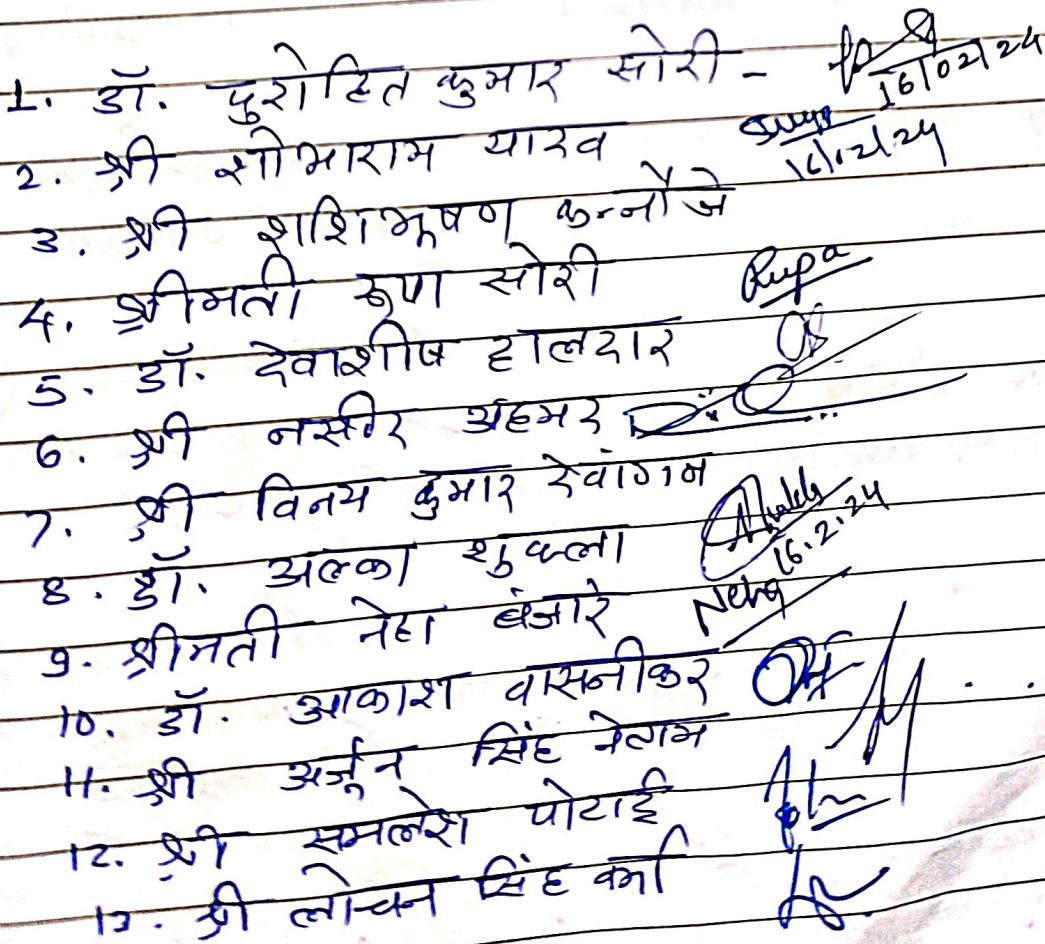 1. डॉ. पुरोहित कुमार सोरी - 16/02/24
2. श्री शोभाराम यादव 16/02/24
3. श्री शशिभूषण कन्नौजे
4. श्रीमती रूपा सोरी Rupa
5. डॉ. देवाशीष हालदार
6. श्री नसीर अहमद
7. श्री विनय कुमार देवांगन
8. डॉ. अल्का शुक्ला 16.2.24
9. श्रीमती नेहा बंजारे Neha
10. डॉ. आकाश वासनीकर
11. श्री अर्जुन सिंह नेताम
12. श्री समलेश पोटाई
13. श्री लोचन सिंह वर्मा